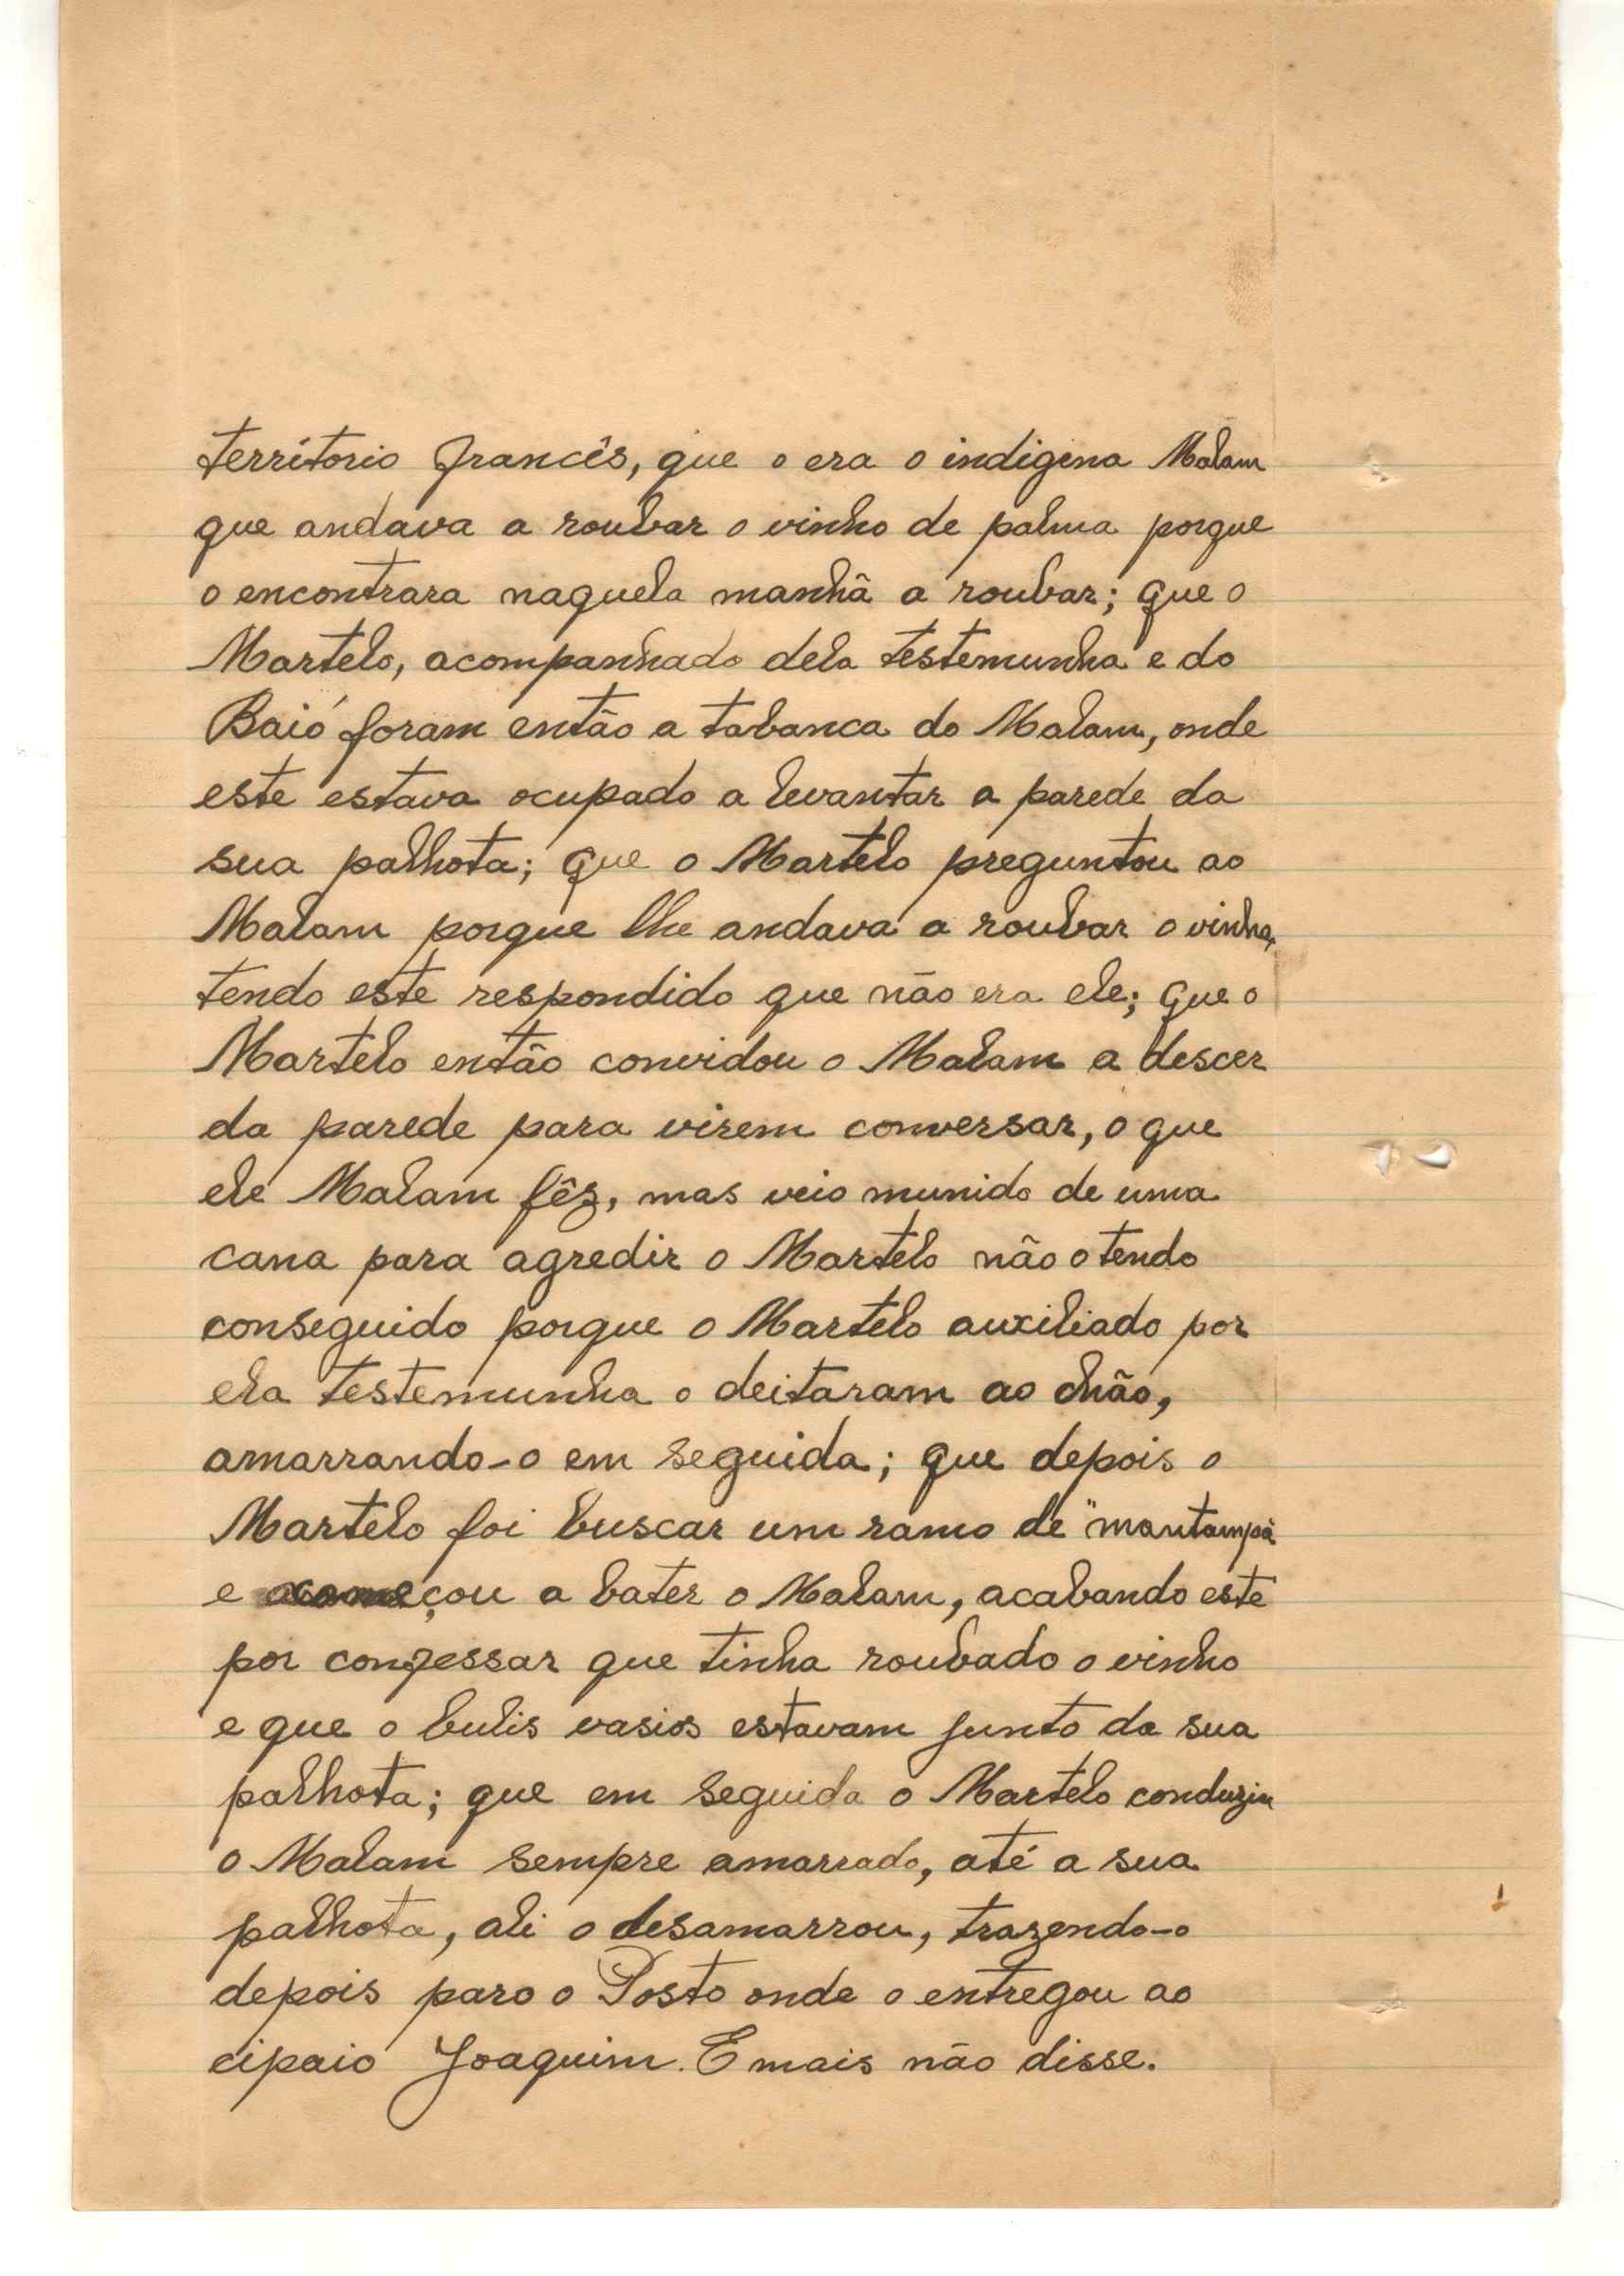 território francês, que o era o indigena Malam
que andava a roubar o vinho de palma porque
o encontrara naquela manhã a roubar; que o
Martelo, acompanhado dela testemunha e do
Baió foram então a tabanca do Malam, onde
este estava ocupado a levantar a parede da
sua palhota; que o Martelo preguntou ao
Malam porque lhe andava a roubar o vinho,
tendo este respondido que não era ele; que o
Martelo então convidou o Malam a descer
da parede para virem conversar, o que
ele Malam fêz, mas veio munido de uma
cana para agredir o Martelo não o tendo
conseguido porque o Martelo auxiliado por
ela testemunha o deitaram ao chão,
amarrando-o em seguida; que depois o
Martelo foi buscar um ramo de "mantampa
e começou a bater o Malam, acabando este
por confessar que tinha roubado o vinho
e que o bulis vasios estavam junto da sua
palhota; que em seguida o Martelo conduziu
o Malam sempre amarrado, até a sua
palhota, ali o desamarrou, trazendo-o
depois paro o Posto onde o entregou ao
cipaio Joaquim. E mais não disse.